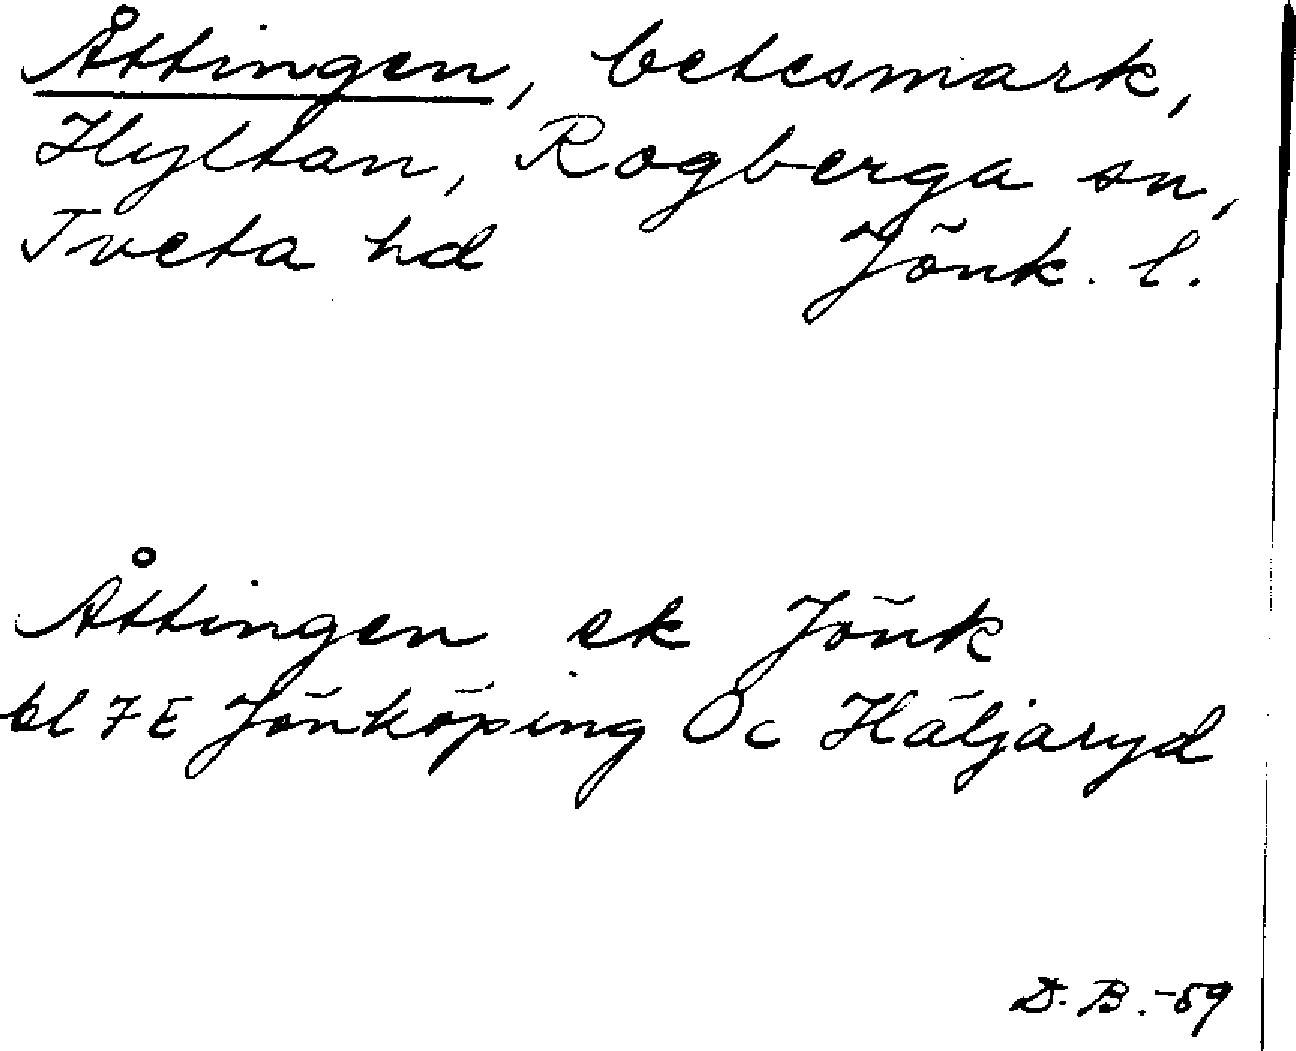 Åttingen, betesmark,
Hyltan, Rogberga sn,
Tveta hd Jönk. l.
Åttingen ek Jönk
bl 7E Jönköping Öc Häljaryd
D. B. -59